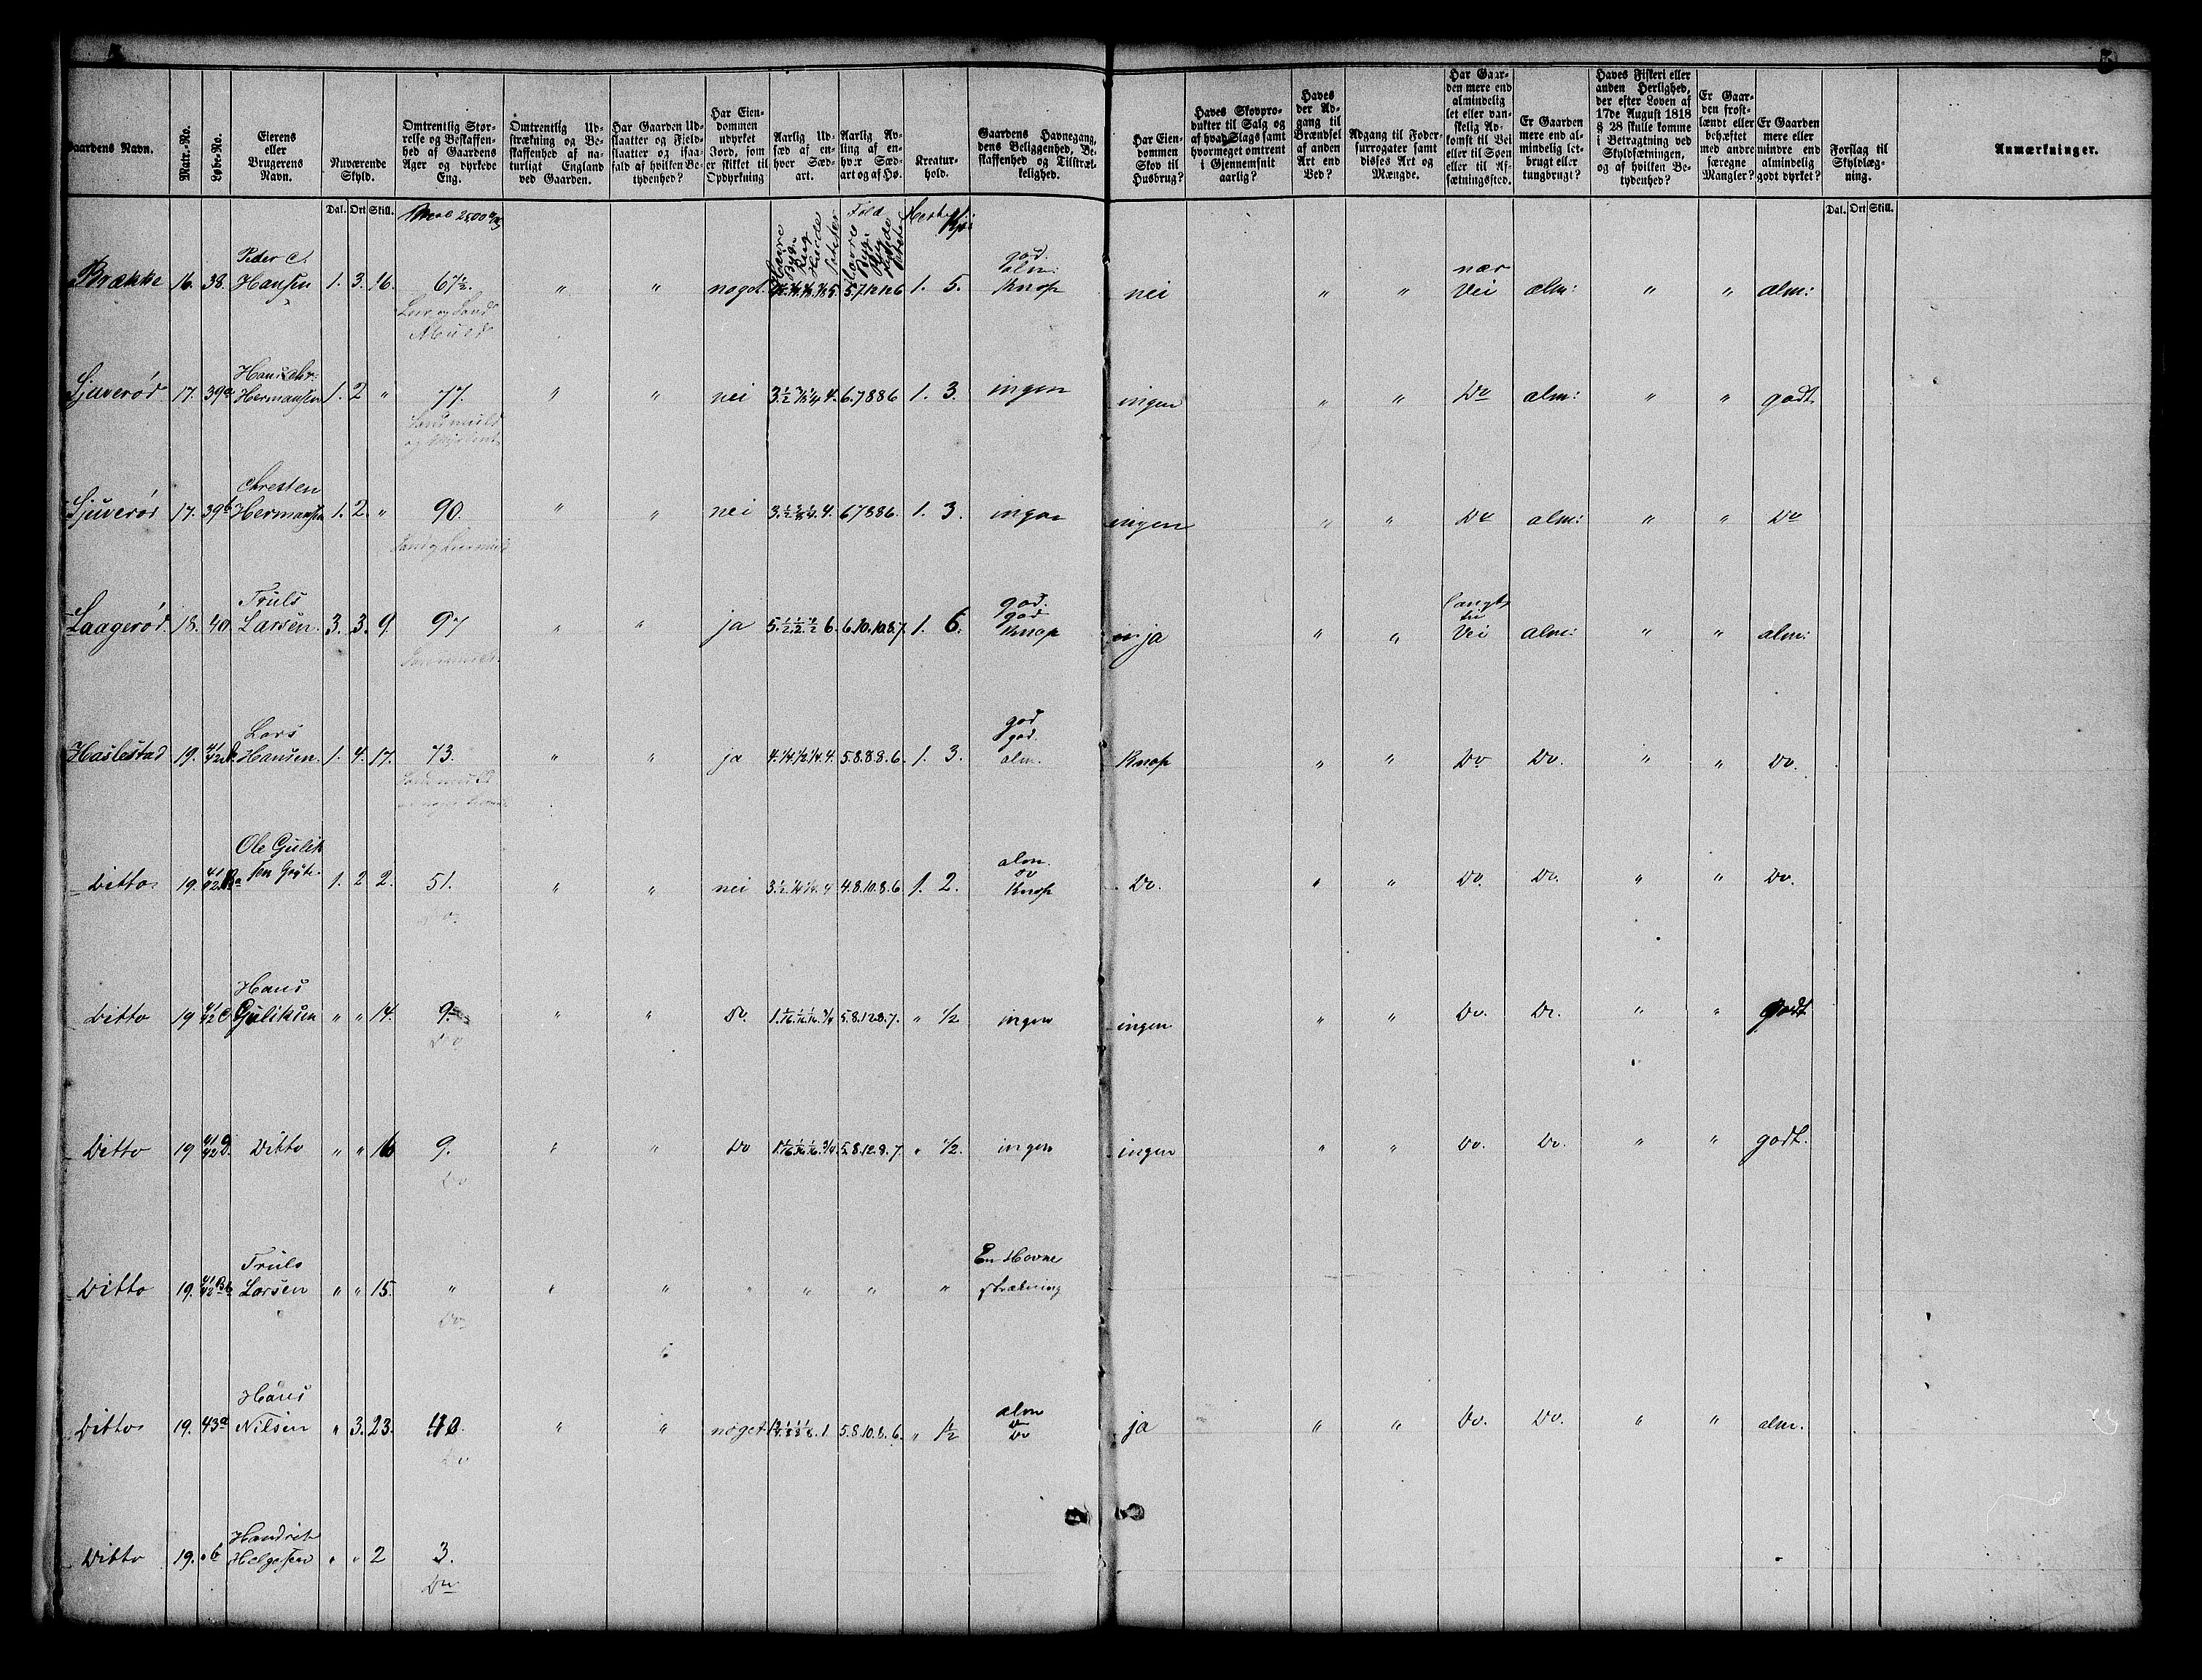 Gaardens Navn. Matr.-No. Løbe-No. Eierens eller Brugerens Navn. Nuværende Skyld. Omtrentlig Størrelse og Beskaffenhed af Gaardens Ager og dyrkede Eng. Omtrentlig Udstrækning og Beskaffenhed af naturligt England ved Gaarden. Har Gaarden Udslaatter og Fieldslaatter og isaafald af hvilken Betydenhed? Har Eiendommen udyrket Jord, som er skikket til Opdyrkning Aarlig Udsæd af enhver Sædart. Aarlig Avling af enhver Sædart og af Hø. Kreaturhold. Gaardens Havnegang, dens Beliggenhed, Beskaffenhed og Tilstrækkelighed. Har Eiendommen Skov til Husbrug? Haves Skovprodukter til Salg og af hvad Slags samt hvormeget omtrent i Gjennemsnit aarlig? Haves der Adgang til Brændsel af anden Art end Ved? Adgang til Fodersurrogater samt disses Art og Mængde. Har Gaarden mere end almindelig let eller vanskelig Adkomst til Vei eller til Søen eller til Afsætningssted. Er Gaarden mere end almindelig letbrugt eller tungbrugt? Haves Fiskeri eller anden Herlighed, der efter Loven af 17de August 1818 § 28 skulle komme i Betragtning ved Skyldsætningen, og af hvilken Betydenhed? Er Gaarden frostlændt eller behæftet med andre særegne Mangler? Er Gaarden mere eller mindre end almindelig godt dyrket? Forslag til Skyldlægning. Anmærkninger.
Dal. Ort Skill. Dal. Ort Skill.
Havre Byg Rug Hvede Poteter Fold Havre Byg Rug Hvede
Brække 16. 38. Peder C. Hansen 1. 3. 16. 67½. " " noget 1. 5. god. alm: Knap nei " " nær Vei alm: " " alm:
Leer og Sand Muld
Sjuverød 17. 39a Hans Chr: Hermansen 1. 2 " 77. " " nei 6.7886 1. 3. ingen ingen " " Do alm: " " godt.
Sandmuld
Sjuverød 17. 39b Chresten Hermansen 1. 2. " 90. " " nei 67886. 1. 3. ingen ingen " " Do alm: " " Do
Laagerød. 18. 40 Truls Larsen. 3. 3. 9. 97 " " ja 6.10.10.8.7. 1. 6. god. god Knap ja " " langt til Vei alm: " " alm:
Haslestad 19. 41/42 Lars Hansen. 1. 4. 17. 73. " " ja 4.¼.½.¼.4. 5.8.8.8.6. 1. 3. god god. alm. Knap " " Do Do. " " Do.
Sandmuld
Ditto 19. 41/42 Ba Ole Gulik 1. 2 2. 51. " " nei 4.8.10.8.6 1. 2. alm. Do Knap Do. " " Do. Do. " " Do.
Do.
Ditto 19 41/42 C Hans Guliksen " " 14. 9. " " Do. 5.8.12.8.7. " ½ ingen ingen " " Do. Do. " " godt
Do
Ditto 19 41/42 D. Ditto " " 16 9. " " Do 5.8.12.8.7 " ½. ingen ingen " " Do. Do. " " godt.
Do
Ditto 19. 41/42 Bb Truls Larsen " " 15. " " " " " " " En Havne strækning
Do
Ditto 19. 43a Hans Nilsen " 3. 23. 40. " " noget 5.8.10.8.6. " ½ alm Do ja " " Do. Do. " " alm.
Do
Ditto 19. " b Helgesen " " 2 3.
Do